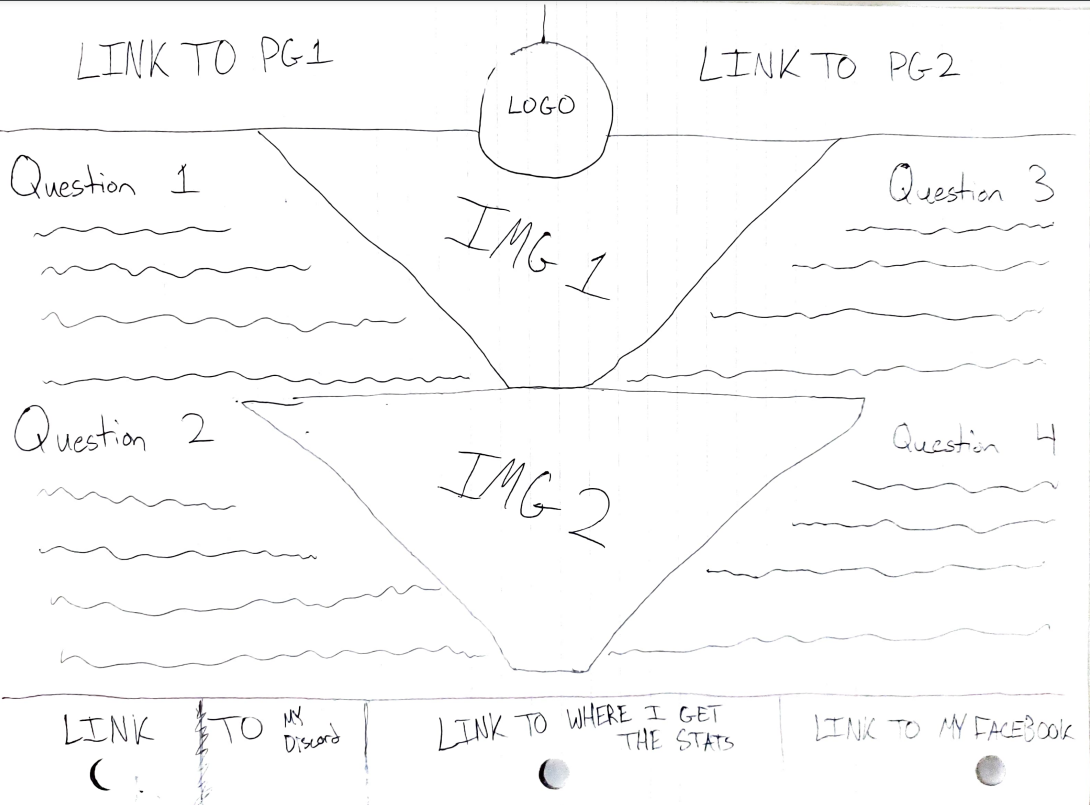 LINK TO PG1
LOGO
LINK TO PG2
Question 1
IMG 1
Question 3
Question 2
IMG 2
Question 4
LINK TO MY
Discord
LINK TO WHERE I GET
THE STATS
LINK TO MY FACEBOOK